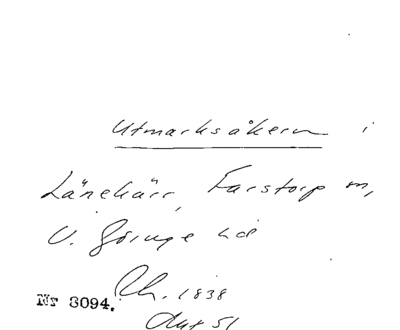 Utmarksåkern i
Länekärr, Farstorp sn,
V. Göinge hd
Ch. 1838
Akt 51
Nr 3094.